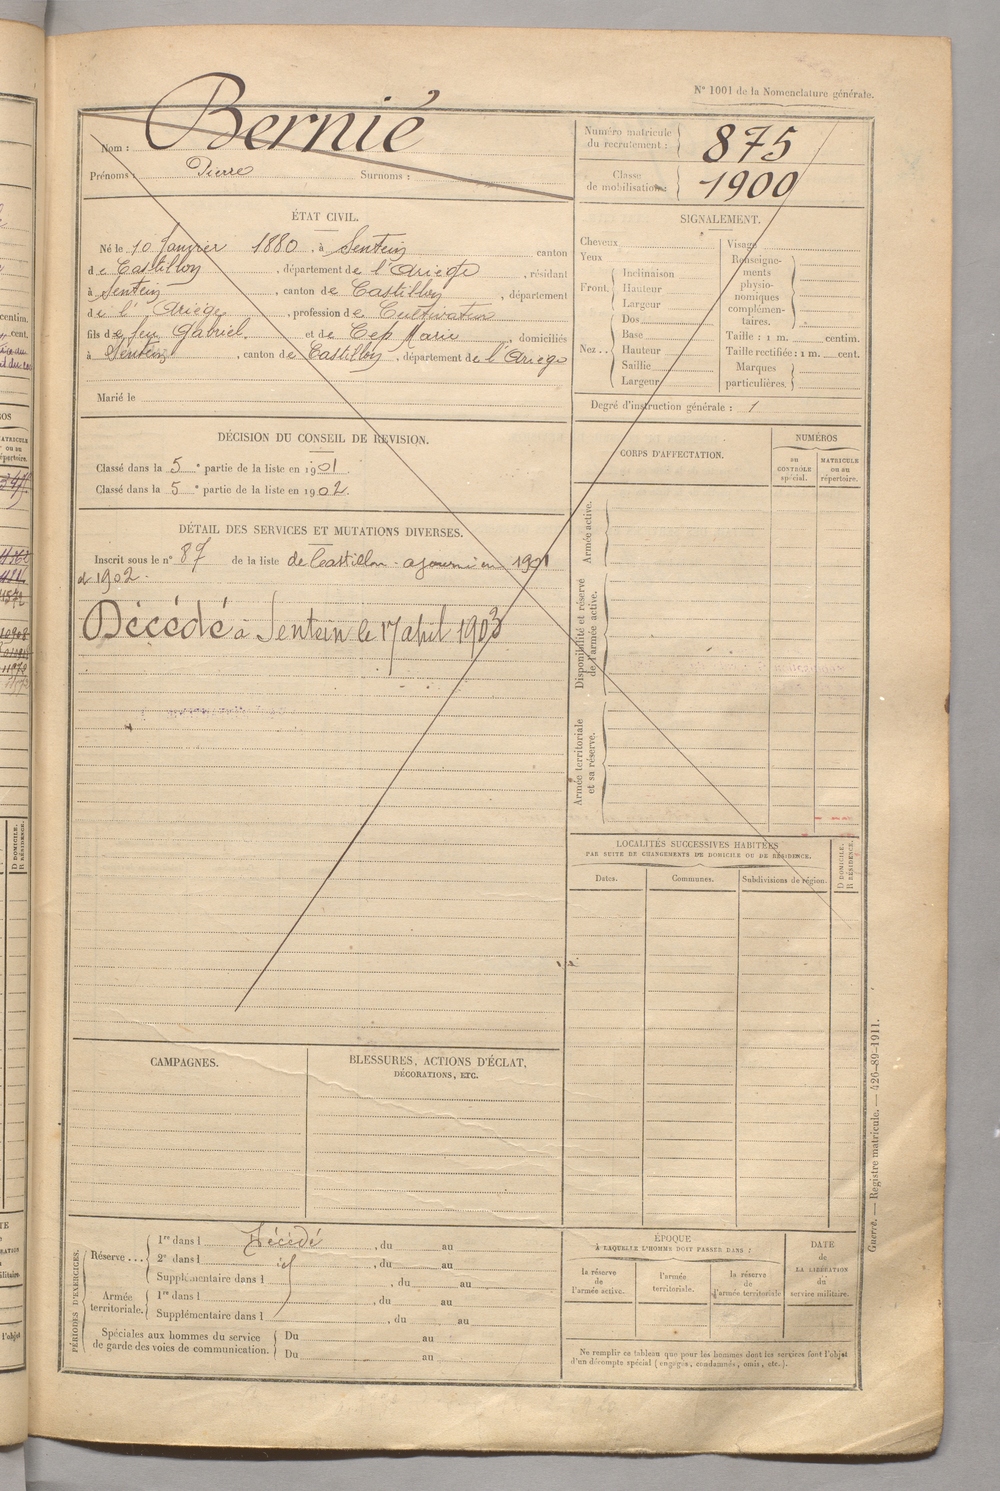 N° 1001 de la Nomenclature générale.
Bernié
Nom :
Prénoms : Pierre Surnoms :
Numéro matricule du recrutement : 875
Classe de mobilisation : 1900
ÉTAT CIVIL.
Né le 10 Janvier 1880, à Sentein canton
de Castillon, département de l'Ariège, résidant
à Sentein, canton de Castillon, département
de l'Ariège, profession de Cultivateur
fils de feu Gabriel et de Cep Marie, domiciliés
à Sentein, canton de Castillon, département de l'Ariège
Marié le
SIGNALEMENT.
Cheveux
Yeux
Front. Inclinaison
Hauteur
Largeur
Nez .. Dos
Base
Hauteur
Saillie
Largeur
Visage
Renseigne-
ments
physio-
nomiques
complémen-
taires.
Taille : 1 m. centim.
Taille rectifiée : 1 m. cent.
Marques
particulières.
Degré d'instruction générale : 1
DÉCISION DU CONSEIL DE REVISION.
Classé dans la 5e partie de la liste en 1901.
Classé dans la 5e partie de la liste en 1902.
CORPS D'AFFECTATION.
NUMÉROS
au
CONTRÔLE
spécial.
MATRICULE
ou au
répertoire.
Armée active.
Disponibilité et réserve
de l'armée active.
Armée territoriale
et sa réserve.
DÉTAIL DES SERVICES ET MUTATIONS DIVERSES.
Inscrit sous le n° 87 de la liste de Castillon - ajourné en 1901
et 1902.
Décédé à Sentein le 17 avril 1903
LOCALITÉS SUCCESSIVES HABITÉES
PAR SUITE DE CHANGEMENTS DE DOMICILE OU DE RÉSIDENCE.
Dates.
Communes.
Subdivisions de région.
D DOMICILE.
R RÉSIDENCE.
CAMPAGNES.
BLESSURES, ACTIONS D'ÉCLAT,
DÉCORATIONS, ETC.
PÉRIODES D'EXERCICES.
Réserve ... 1re dans l Décédé, du au
2e dans l id, du au
Supplémentaire dans l, du au
Armée territoriale. 1re dans l, du au
Supplémentaire dans l, du au
Spéciales aux hommes du service
de garde des voies de communication.
Du au
Du au
ÉPOQUE
À LAQUELLE L'HOMME DOIT PASSER DANS :
la réserve
de
l'armée active.
l'armée
territoriale.
la réserve
de
l'armée territoriale
DATE
de
LA LIBÉRATION
du
service militaire.
Ne remplir ce tableau que pour les hommes dont les services font l'objet
d'un décompte spécial (engagés, condamnés, omis, etc.).
Guerre. — Registre matricule. — 426-89-1911.